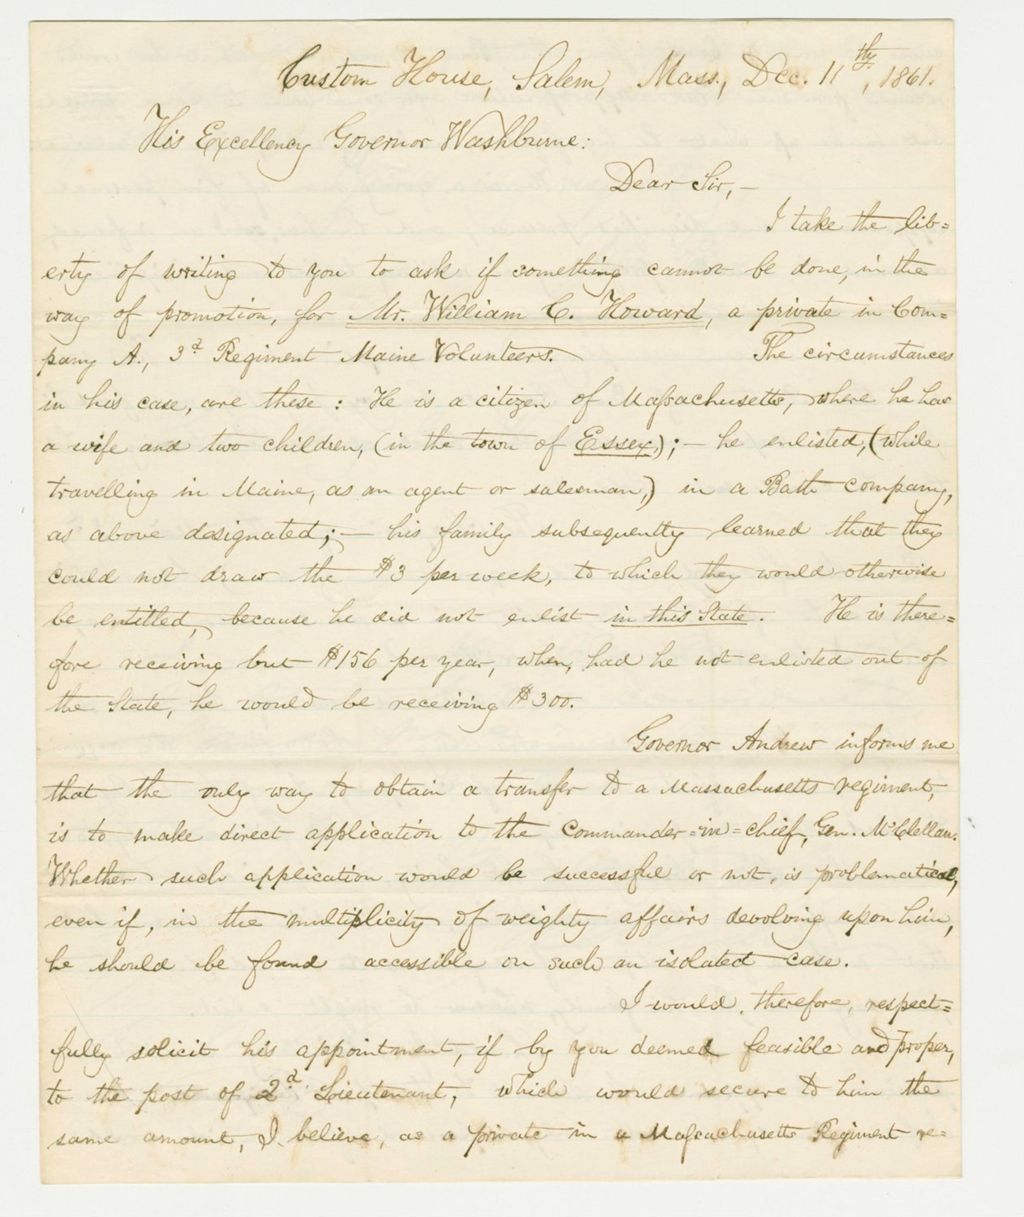 Custom House, Salem, Mass., Dec. 11th, 1861.
His Excellency Governor Washburne:
Dear Sir,—
I take the lib=
erty of writing to you to ask if something cannot be done, in the
way of promotion, for Mr. William C. Howard, a private in Com=
pany A., 3d Regiment Maine Volunteers. The circumstances
in his case, are these: He is a citizen of Massachusetts, where he has
a wife and two children, (in the town of Essex,);— he enlisted, (while
travelling in Maine, as an agent or salesman,) in a Bath company,
as above designated;— his family subsequently learned that they
could not draw the $3 per week, to which they would otherwise
be entitled, because he did not enlist in this State. He is there=
fore receiving but $156 per year, when, had he not enlisted out of
the State, he would be receiving $300.
Governor Andrew informs me
that the only way to obtain a transfer to a Massachusetts regiment,
is to make direct application to the Commander=in=chief, Gen. McClellan.
Whether such application would be successful or not, is problematical,
even if, in the multiplicity of weighty affairs devolving upon him,
he should be found accessible on such an isolated case.
I would, therefore, respect=
fully solicit his appointment, if by you deemed feasible and proper,
to the post of 2d Lieutenant, which would secure to him the
same amount, I believe, as a private in a Massachusetts Regiment re=